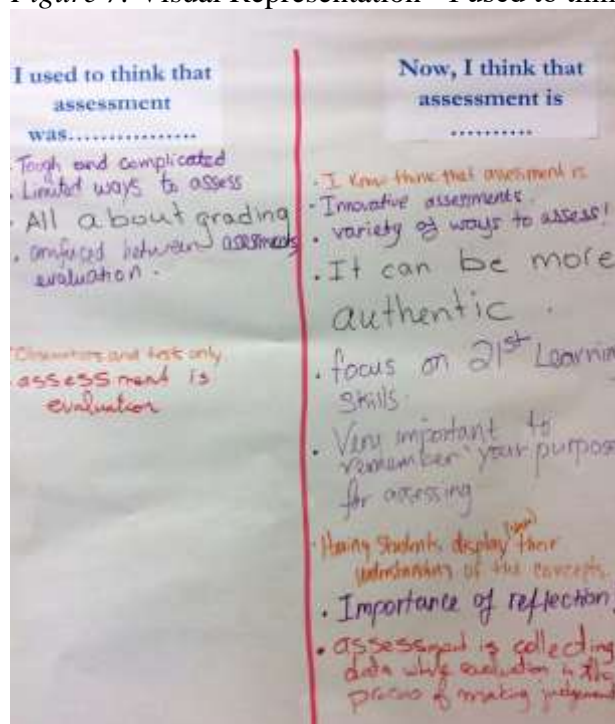 Figure 7. Visual Representation - I used to thin
I used to think that
assessment
was................
. Tough and complicated
. Limited ways to assess
. All about grading
. confuced between assesments
evaluation .
Observations and test only
. assessment is
evaluation
Now, I think that
assessment is
..........
. I Know think that assesment is
. Innovative assesments.
. variety of ways to assess!
. It can be more
authentic .
. focus on 21st Learnin
Skills.
. Very important to
remember your purpose
for assessing
. Having Students display their
understanding of the concepts.
. Importance of reflection.
. assessment is collecting
data while evaluation is the
process of making judgement